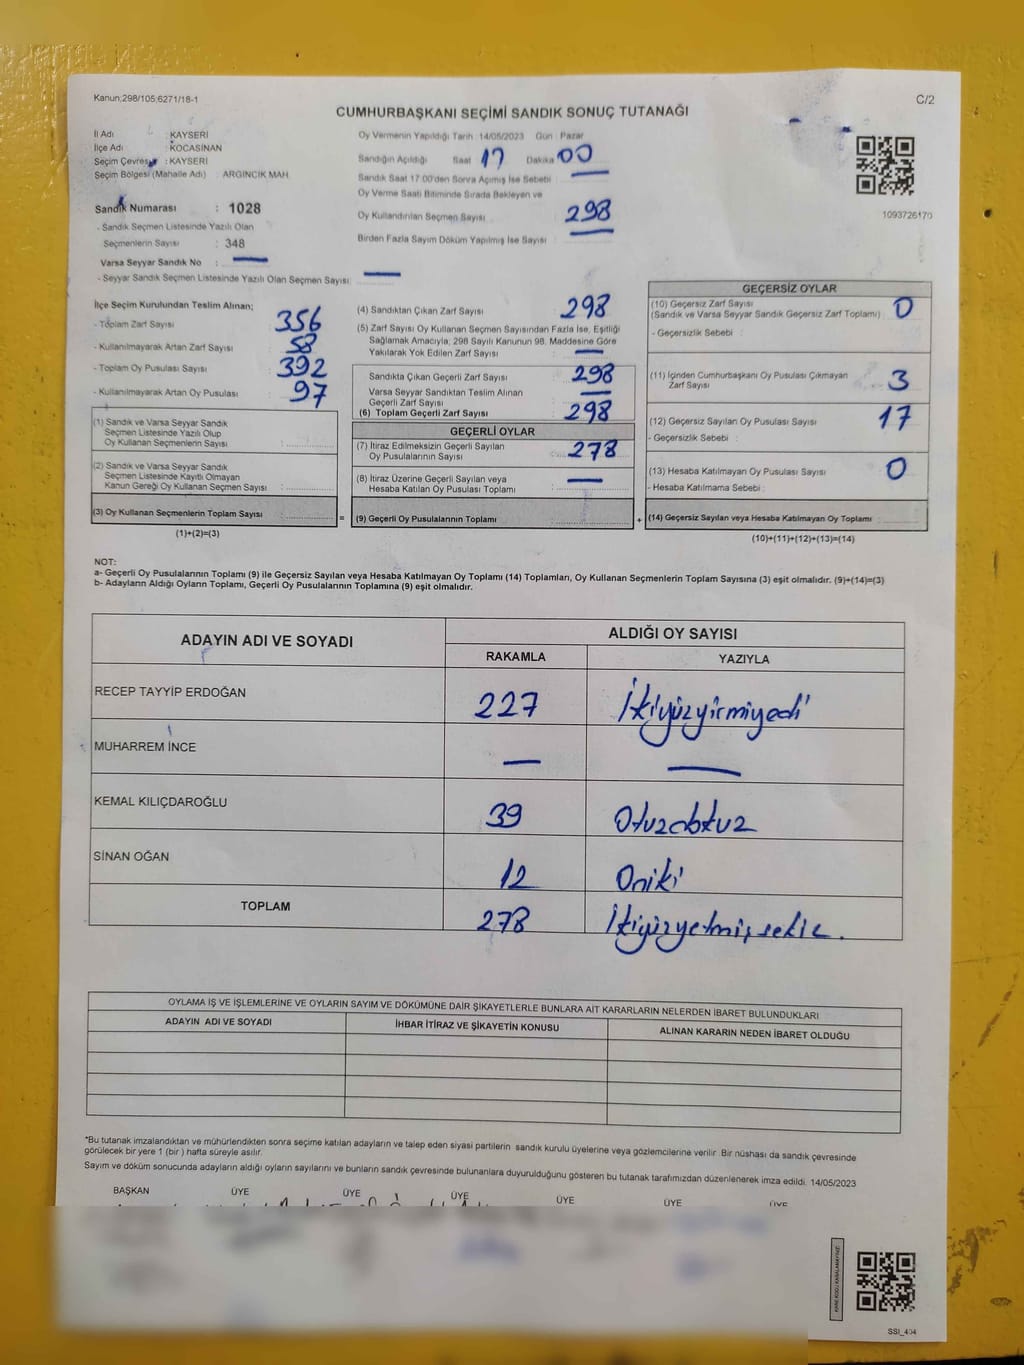 Kanun:298/105;6271/18-1
C/2
CUMHURBAŞKANI SEÇİMİ SANDIK SONUÇ TUTANAĞI
İl Adı : KAYSERİ
İlçe Adı : KOCASİNAN
Seçim Çevresi : KAYSERİ
Seçim Bölgesi (Mahalle Adı) : ARGINCIK MAH.
Sandık Numarası : 1028
- Sandık Seçmen Listesinde Yazılı Olan
Seçmenlerin Sayısı : 348
Varsa Seyyar Sandık No : —
- Seyyar Sandık Seçmen Listesinde Yazılı Olan Seçmen Sayısı: —
Oy Vermenin Yapıldığı Tarih :14/05/2023 Gün : Pazar
Sandığın Açıldığı Saat 17 Dakika 00
Sandık Saat 17:00'den Sonra Açılmış İse Sebebi : —
Oy Verme Saati Bitiminde Sırada Bekleyen ve
Oy Kullandırılan Seçmen Sayısı : 298
Birden Fazla Sayım Döküm Yapılmış İse Sayısı : —
1093726170
İlçe Seçim Kurulundan Teslim Alınan;
- Toplam Zarf Sayısı : 356
- Kullanılmayarak Artan Zarf Sayısı : 58
- Toplam Oy Pusulası Sayısı : 392
- Kullanılmayarak Artan Oy Pusulası : 97
(1) Sandık ve Varsa Seyyar Sandık
Seçmen Listesinde Yazılı Olup
Oy Kullanan Seçmenlerin Sayısı :
(2) Sandık ve Varsa Seyyar Sandık
Seçmen Listesinde Kayıtlı Olmayan
Kanun Gereği Oy Kullanan Seçmen Sayısı :
(3) Oy Kullanan Seçmenlerin Toplam Sayısı
(1)+(2)=(3)
=
(4) Sandıktan Çıkan Zarf Sayısı : 298
(5) Zarf Sayısı Oy Kullanan Seçmen Sayısından Fazla İse, Eşitliği
Sağlamak Amacıyla; 298 Sayılı Kanunun 98. Maddesine Göre
Yakılarak Yok Edilen Zarf Sayısı : —
Sandıkta Çıkan Geçerli Zarf Sayısı : 298
Varsa Seyyar Sandıktan Teslim Alınan
Geçerli Zarf Sayısı : —
(6) Toplam Geçerli Zarf Sayısı : 298
GEÇERLİ OYLAR
(7) İtiraz Edilmeksizin Geçerli Sayılan
Oy Pusulalarının Sayısı : 278
(8) İtiraz Üzerine Geçerli Sayılan veya
Hesaba Katılan Oy Pusulası Toplamı : —
(9) Geçerli Oy Pusulalarının Toplamı
+
GEÇERSİZ OYLAR
(10) Geçersiz Zarf Sayısı
(Sandık ve Varsa Seyyar Sandık Geçersiz Zarf Toplamı) : 0
- Geçersizlik Sebebi :
(11) İçinden Cumhurbaşkanı Oy Pusulası Çıkmayan
Zarf Sayısı : 3
(12) Geçersiz Sayılan Oy Pusulası Sayısı : 17
- Geçersizlik Sebebi :
(13) Hesaba Katılmayan Oy Pusulası Sayısı : 0
- Hesaba Katılmama Sebebi :
(14) Geçersiz Sayılan veya Hesaba Katılmayan Oy Toplamı
(10)+(11)+(12)+(13)=(14)
NOT:
a- Geçerli Oy Pusulalarının Toplamı (9) ile Geçersiz Sayılan veya Hesaba Katılmayan Oy Toplamı (14) Toplamları, Oy Kullanan Seçmenlerin Toplam Sayısına (3) eşit olmalıdır. (9)+(14)=(3)
b- Adayların Aldığı Oyların Toplamı, Geçerli Oy Pusulalarının Toplamına (9) eşit olmalıdır.
ADAYIN ADI VE SOYADI
ALDIĞI OY SAYISI
RAKAMLA YAZIYLA
RECEP TAYYİP ERDOĞAN 227 İkiyüzyirmiyedi
MUHARREM İNCE — —
KEMAL KILIÇDAROĞLU 39 Otuzdokuz
SİNAN OĞAN 12 Oniki
TOPLAM 278 İkiyüzyetmişsekiz.
OYLAMA İŞ VE İŞLEMLERİNE VE OYLARIN SAYIM VE DÖKÜMÜNE DAİR ŞİKAYETLERLE BUNLARA AİT KARARLARIN NELERDEN İBARET BULUNDUKLARI
ADAYIN ADI VE SOYADI İHBAR İTİRAZ VE ŞİKAYETİN KONUSU ALINAN KARARIN NEDEN İBARET OLDUĞU
*Bu tutanak imzalandıktan ve mühürlendikten sonra seçime katılan adayların ve talep eden siyasi partilerin sandık kurulu üyelerine veya gözlemcilerine verilir. Bir nüshası da sandık çevresinde
görülecek bir yere 1 (bir ) hafta süreyle asılır.
Sayım ve döküm sonucunda adayların aldığı oyların sayılarını ve bunların sandık çevresinde bulunanlara duyurulduğunu gösteren bu tutanak tarafımızdan düzenlenerek imza edildi. 14/05/2023
BAŞKAN ÜYE ÜYE ÜYE ÜYE ÜYE ÜYE
SSI_404